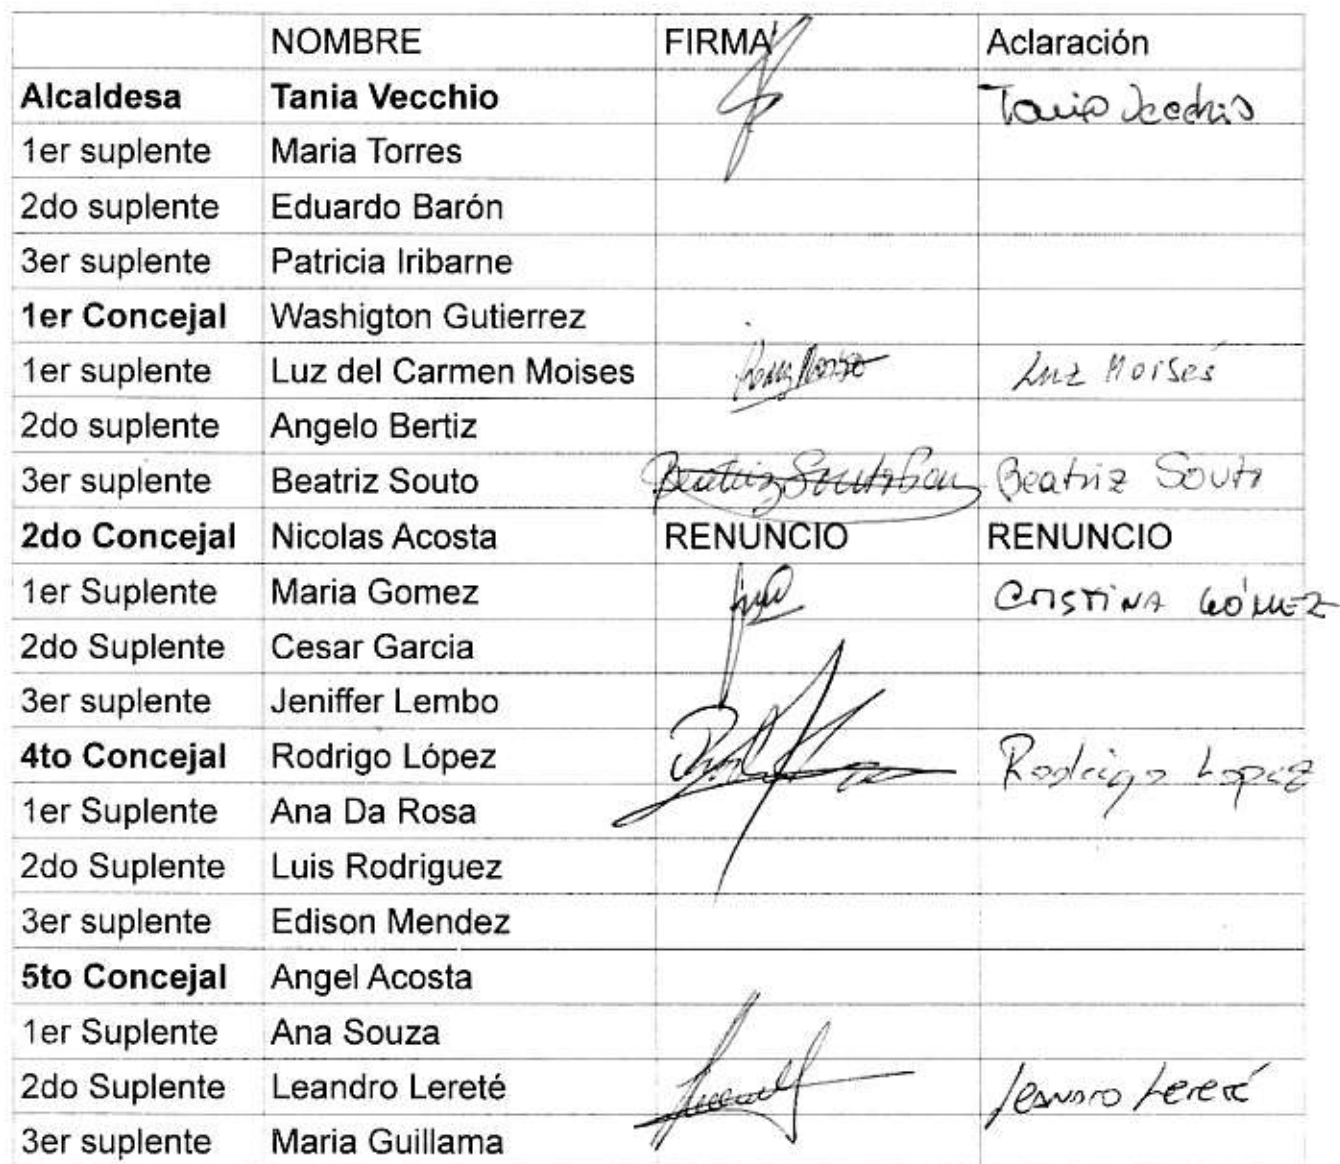 NOMBRE FIRMA Aclaración
Alcaldesa Tania Vecchio Tania Vecchio
1er suplente Maria Torres
2do suplente Eduardo Barón
3er suplente Patricia Iribarne
1er Concejal Washigton Gutierrez
1er suplente Luz del Carmen Moises Luz Moisés
2do suplente Angelo Bertiz
3er suplente Beatriz Souto Beatriz Souto Beatriz Souto
2do Concejal Nicolas Acosta RENUNCIO RENUNCIO
1er Suplente Maria Gomez CRISTINA GÓMEZ
2do Suplente Cesar Garcia
3er suplente Jeniffer Lembo
4to Concejal Rodrigo López Rodrigo Lopez
1er Suplente Ana Da Rosa
2do Suplente Luis Rodriguez
3er suplente Edison Mendez
5to Concejal Angel Acosta
1er Suplente Ana Souza
2do Suplente Leandro Lereté Leandro Lereté
3er suplente Maria Guillama